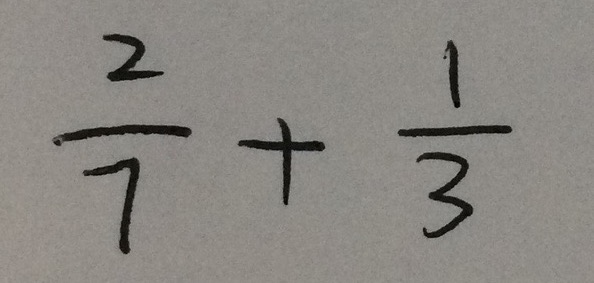 2/7 + 1/3